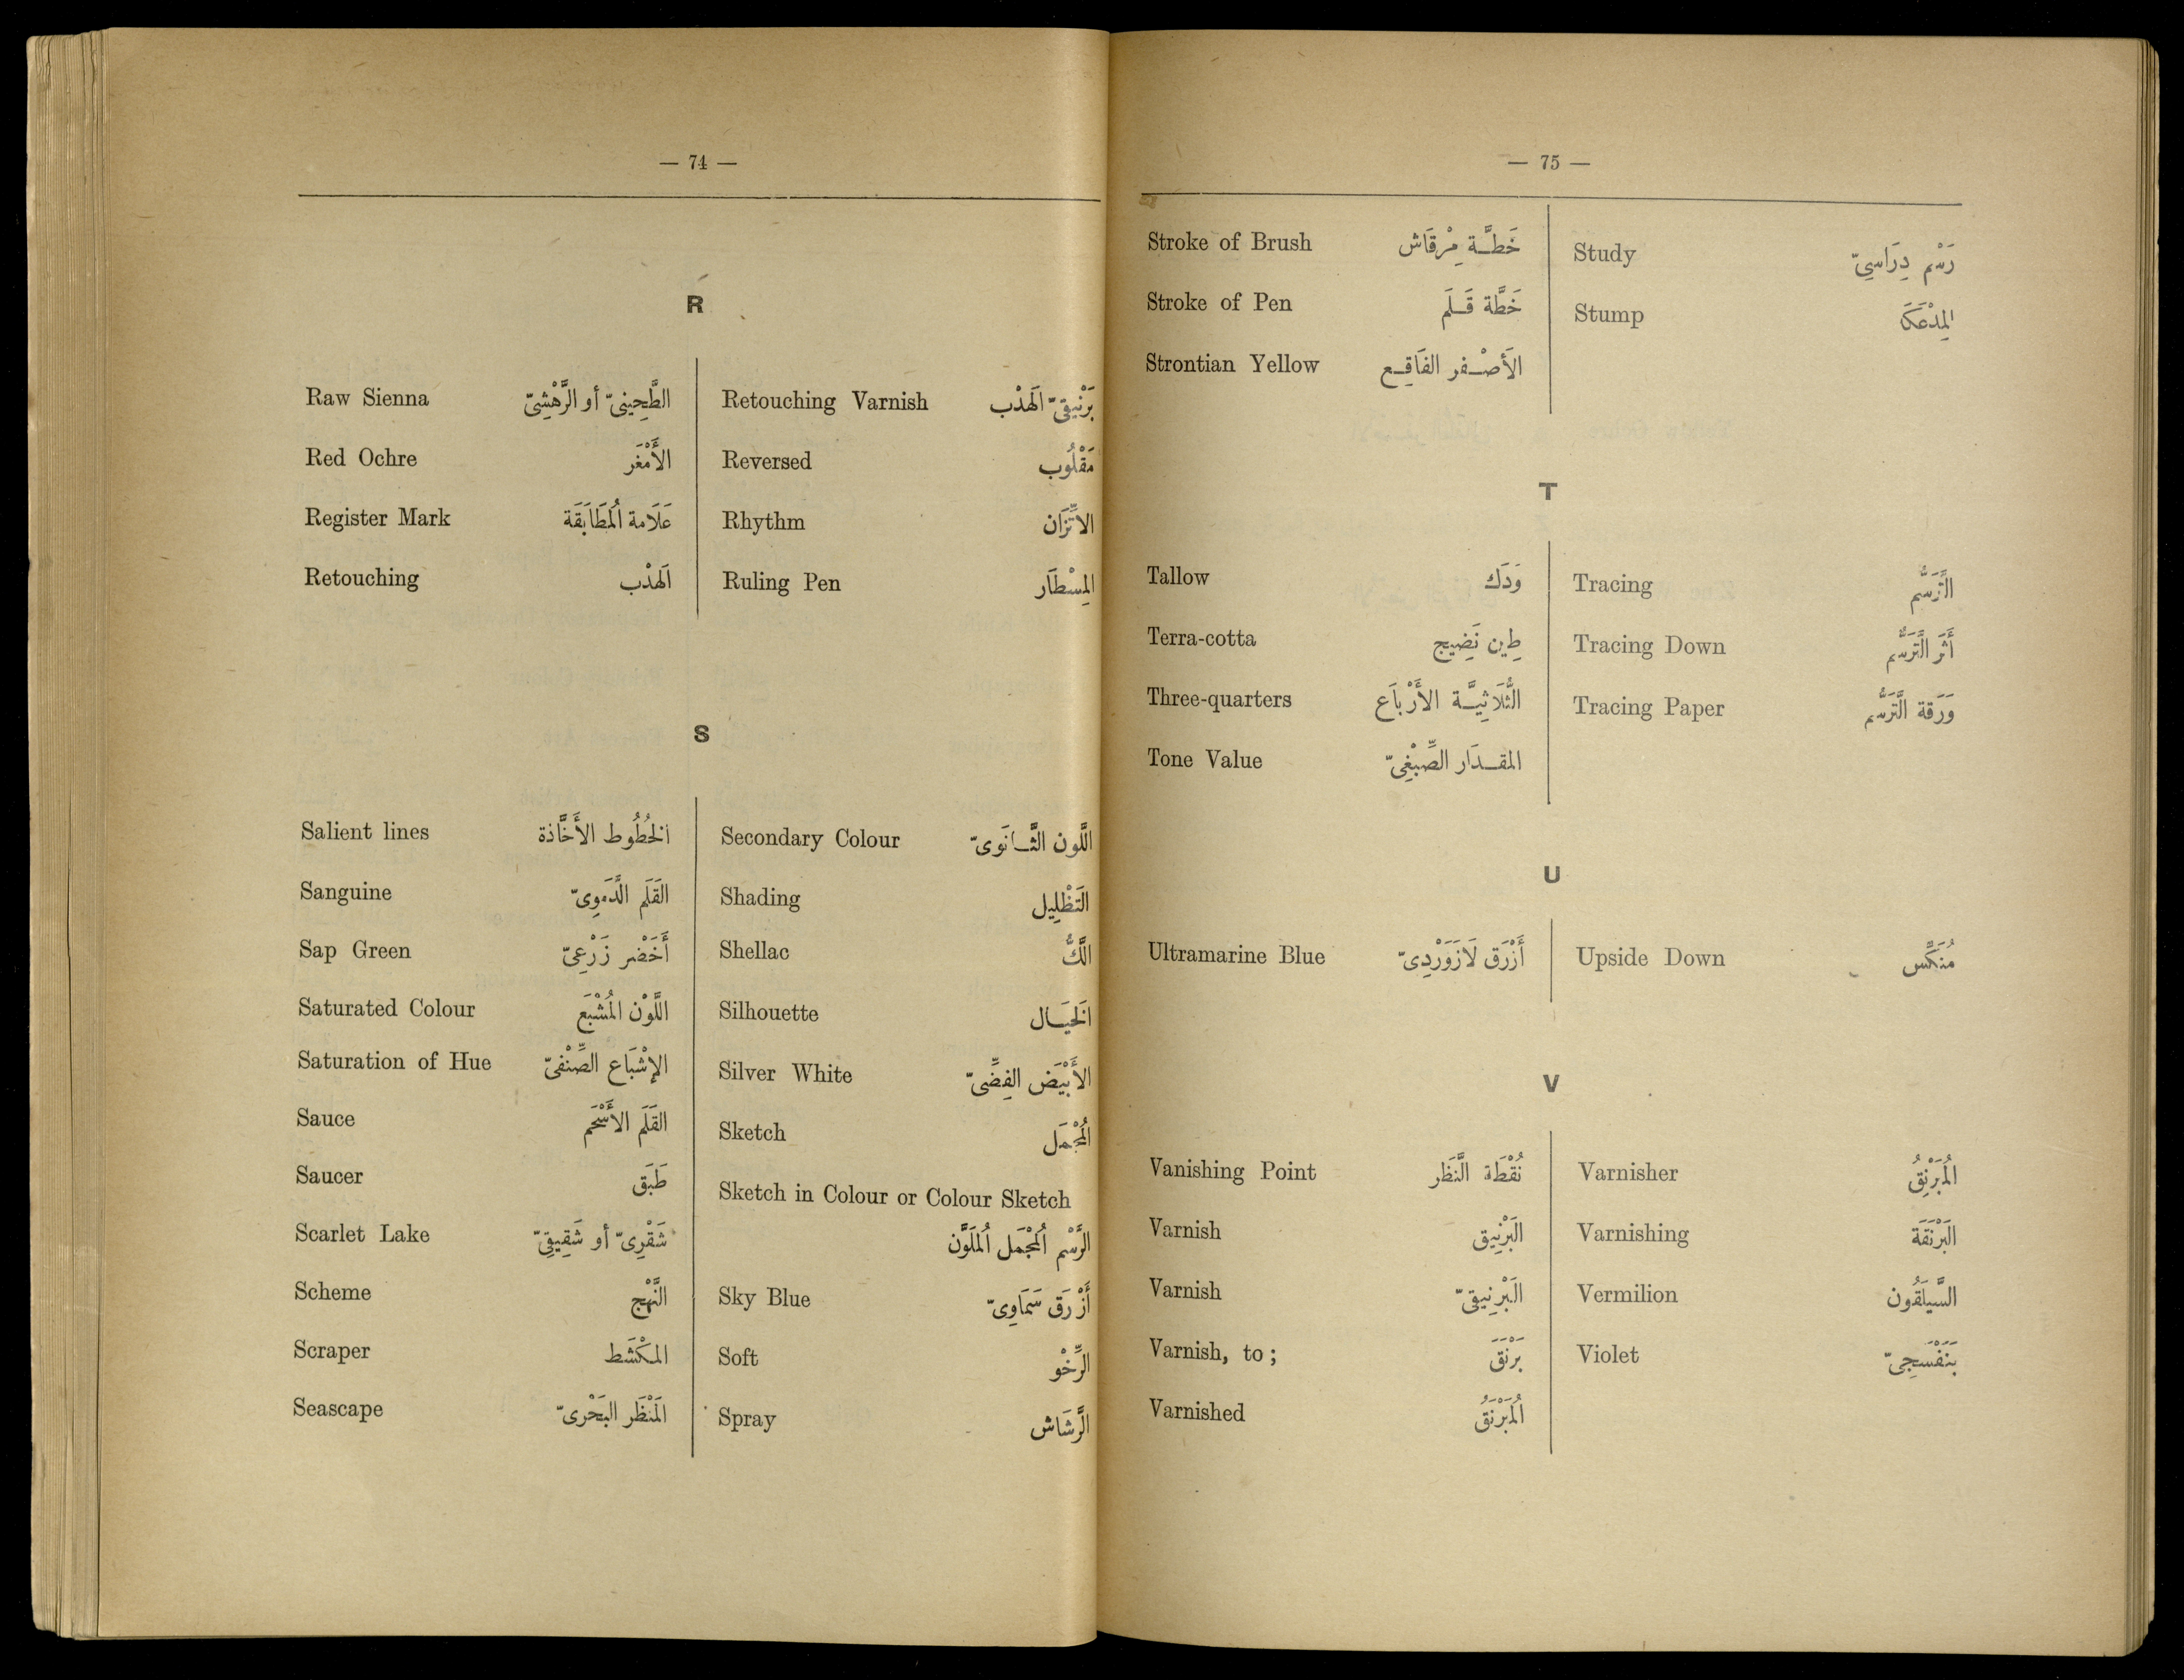 — 74 —
R
Raw Sienna الطَّحِينىّ أو الرَّهْشِىّ
Red Ochre الأَمْغَر
Register Mark عَلَامة المُطَابَقَة
Retouching الهَذْب
Retouching Varnish بَرْنيقىّ الهَذْب
Reversed مَقْلُوب
Rhythm الاتِّزَان
Ruling Pen المِسْطَار
S
Salient lines الخُطُوط الأَخَّاذة
Sanguine القَلَم الدَّمَوِىّ
Sap Green أَخْضَر زَرْعِىّ
Saturated Colour اللَّوْن المُشْبَع
Saturation of Hue الإشْبَاع الصِّنْفىّ
Sauce القَلَم الأَسْحَم
Saucer طَبَق
Scarlet Lake شَقْرِىّ أو شَقِيقِىّ
Scheme النَّهْج
Scraper المكْشَط
Seascape المَنْظَر البَحْرىّ
Secondary Colour اللَّون الثَّانَوىّ
Shading التَظْلِيل
Shellac اللَّكُّ
Silhouette الخَيَال
Silver White الأَبْيَض الفِضِّىّ
Sketch المُجْمَل
Sketch in Colour or Colour Sketch
الرَّسْم المُجْمَل المُلَوَّن
Sky Blue أَزْرَق سَمَاوِىّ
Soft الرِّخْو
Spray الرَّشَاش
— 75 —
Stroke of Brush خَطَّة مِرْقَاش
Stroke of Pen خَطَّة قَلَم
Strontian Yellow الأَصْفر الفَاقِع
Study رَسْم دِرَاسِىّ
Stump المِدْعَكَا
T
Tallow وَدَك
Terra-cotta طِين نَضِيج
Three-quarters الثُّلَاثِيَّة الأَرْبَاع
Tone Value المقدَار الصِّبْغِىّ
Tracing التَّرَسُّم
Tracing Down أَثَر التَّرَسُّم
Tracing Paper وَرَقة التَّرَسُّم
U
Ultramarine Blue أَزْرَق لَازَوَرْدِىّ
Upside Down مُنَكَّس
V
Vanishing Point نُقْطَة النَّظَر
Varnish البَرْنِيق
Varnish البَرْنِيقىّ
Varnish, to ; بَرْنَقَ
Varnished المُبَرْنَقُ
Varnisher المُبَرْنِقُ
Varnishing البَرْنَقَة
Vermilion السَّيلَقُون
Violet بَنَفْسَجِىّ